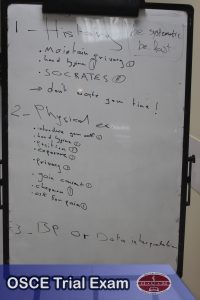 1 - History be systematic
be fast
• Maintain privacy ①
• hand hygiene ①
• SOCRATES ⑧
→ don't waste your time!
2 - Physical ex
• introduce
• hand hygiene ①
• position ①
• exposure ①
• privacy ①
• gain consent ①
• chaperon ①
• ask for pain ①
3 - BP or Data interpretation
OSCE Trial Exam